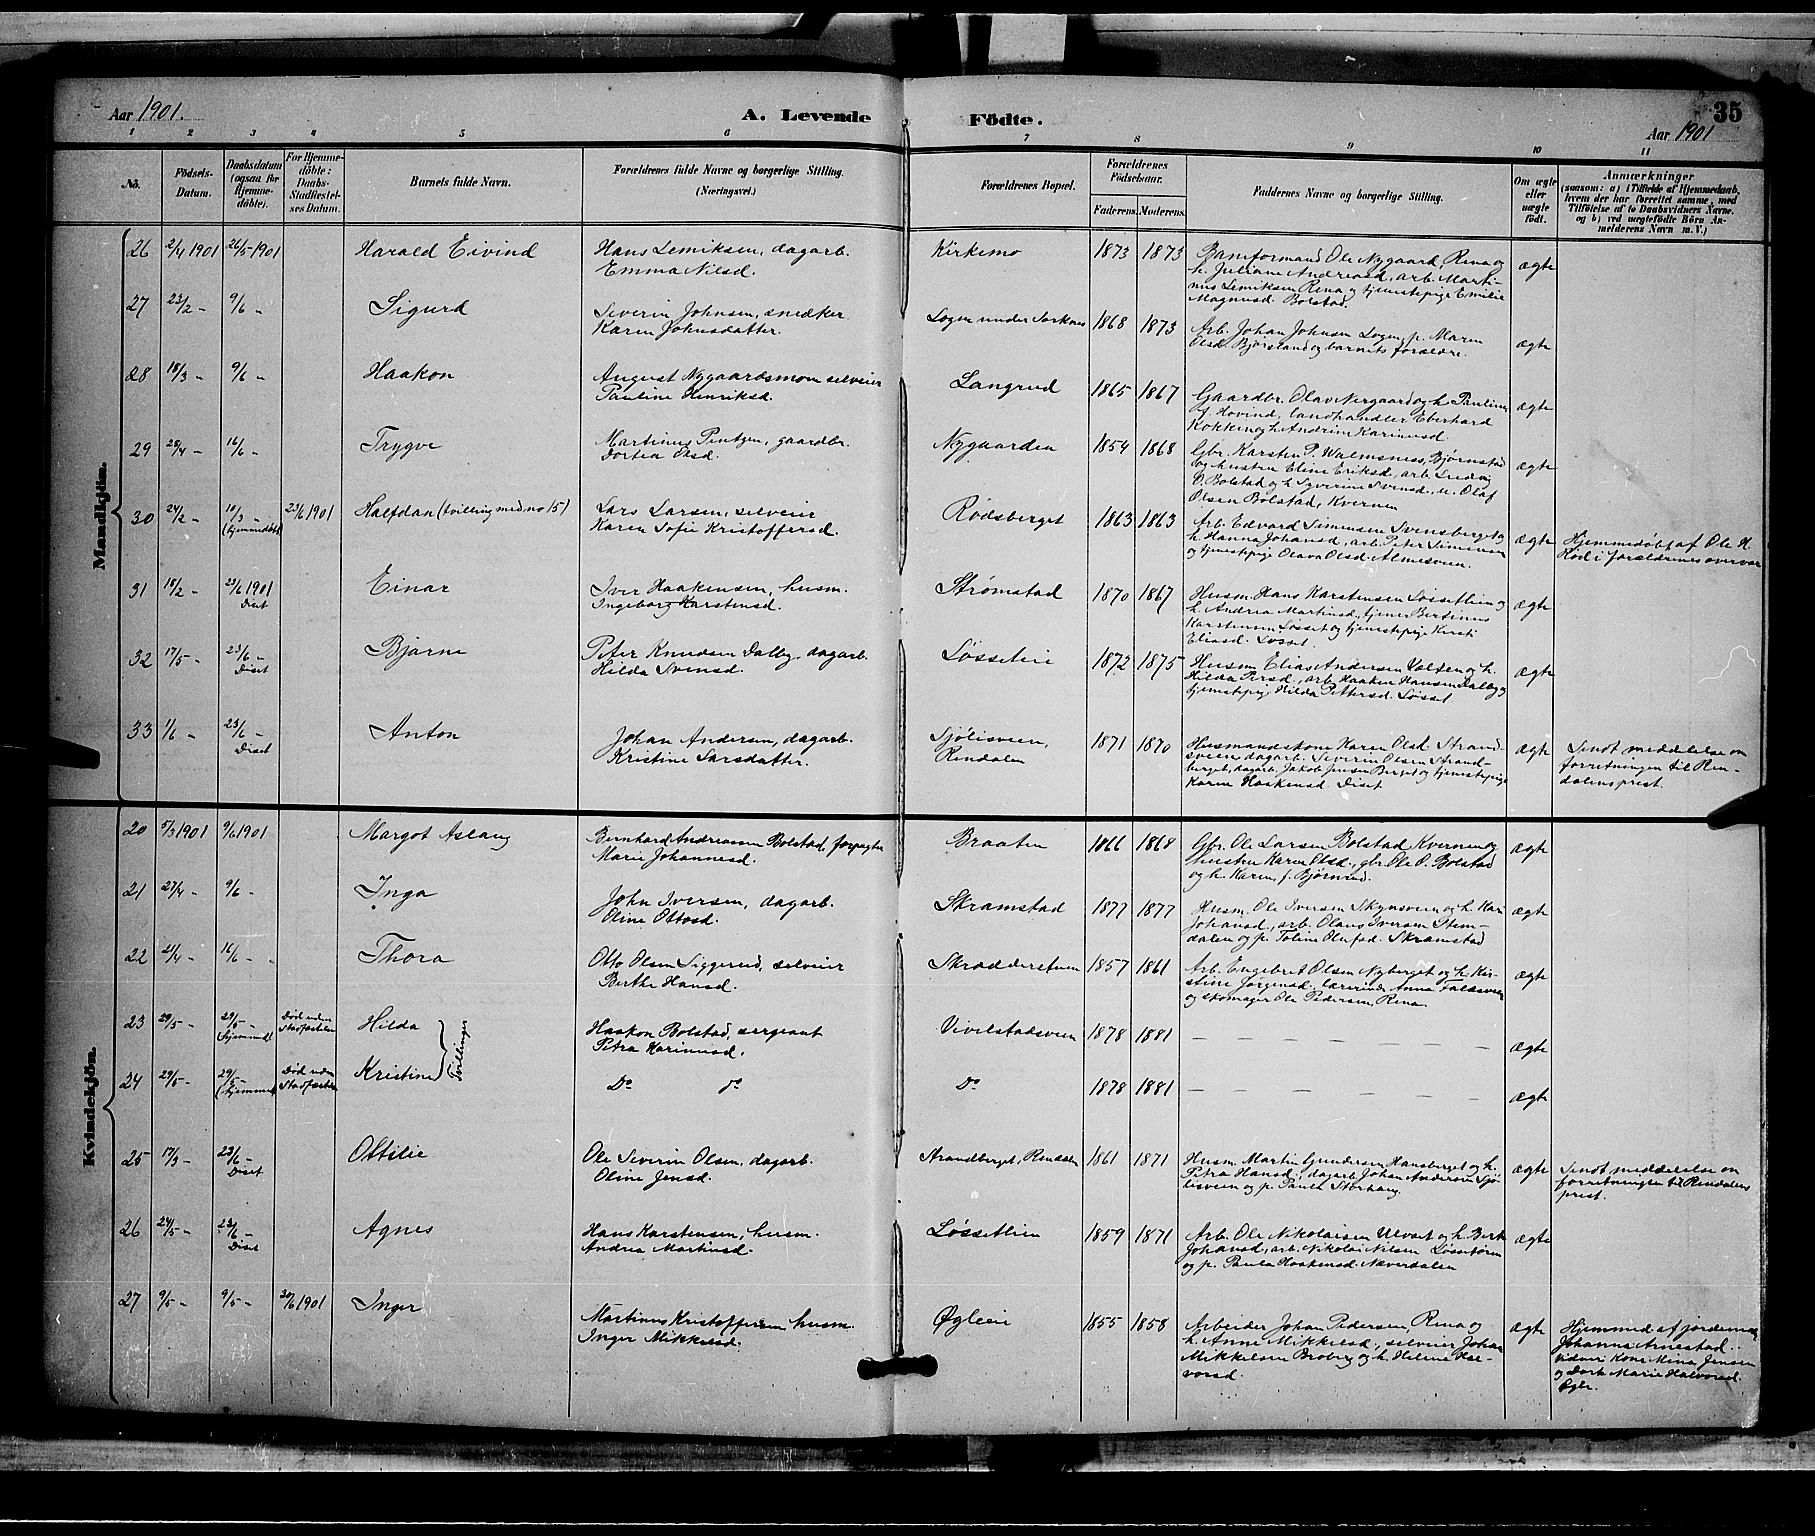 Aar 1901.
A. Levende Födte.
35
Aar 1901
1 2 3 4 5 6 7 8 9 10 11
No.
Födsels-Datum.
Daabsdatum (ogsaa for Hjemmedöbte).
For Hjemmedöbte: Daabs-Stadfæstelses Datum.
Barnets fulde Navn.
Forældrenes fulde Navne og borgerlige Stilling. (Næringsvei.)
Forældrenes Bopæl.
Forældrenes Födselsaar.
Faderens. Moderens.
Faddernes Navne og borgerlige Stilling.
Om ægte eller uægte födt.
Anmærkninger
(saasom: a) i Tilfælde af Hjemmedaab,
hvem der har forrettet samme, med
Tilföielse af to Daabsvidners Navne,
og b) ved uægtefödte Börn An-
melderens Navn m. V.)
Mandkjön.
26 2/4 1901 26/5 1901 Harald Eivind Hans Lemiksen, dagarb. Kirkemo 1873 1873 Baneformand Ole Nygaard, Rena og
Emma Nilsd. h. Juliane Andreasd, arb. Marti- ægte
nus Lemiksen Rena og tjenestepige Emilie
Magnusd. Bolstad.
27 23/2 - 9/6 - Sigurd Severin Johnsen, snedker Logen under Sorknes 1868 1873 Arb. Johan Johnsen Logen, p. Maren
Karen Johnsdatter. Olsd. Bjørstad og barnets forældre. ægte
28 18/3 - 9/6 - Haakon August Nygaardsmoen selveier Langrud 1865 1867 Gaardbr. Olav Nergaard og h. Pauline
Pauline Henriksd. f. Hovind, landhandler Eberhard ægte
Kokkin og h. Andrine Karinusd
29 28/4 - 16/6 - Trygve Martinus Pentzen, gaardbr. Nygaarden 1854 1868 Gbr. Karsten P. Walmsness, Bjørnstad
Dortea Olsd. og hustru Eline Eriksd., arb. Ludvig ægte
O. Bolstad og h. Syverine Svensd., u. Olaf
Olsen Bolstad, Kvernen
30 24/2 - 10/3 - (hjemmedøbt) 23/6 1901 Halfdan (tvilling med no 15) Lars Larsen, selveier Rødsberget 1863 1863 Arb. Edvard Simensen Svensberget og
Karen Sofie Kristoffersd. h. Hanna Johansd., arb. Peter Simensen ægte Hjemmedøbt af Ole H.
og tjenestepige Olava Olsd. Almesveen. Rød i forældrenes overvær
31 18/2 - 23/6 1901 Diset Einar Iver Haakensen, husm. Strømstad 1870 1867 Husm. Hans Karstensen Løssetlien og
Ingeborg Karstensd. h. Andrea Martinsd, tjener Bertinus ægte
Karstensen Løsset og tjenestepige Kirsti
Eliasd. Løsset.
32 17/5 - 23/6 - Diset Bjarne Peter Knudsen Dalby, dagarb. Løssetlie 1872 1875 Husm. Elias Andersen og h.
Hilda Svensd. Hilda Persd., arb. Haaken Hansen Dalby og ægte
tjenestepig. Hilda Pettersd. Løsset
33 1/6 - 23/6 - Diset Anton Johan Andersen, dagarb. Sjølisveen, 1871 1870 Husmandskone Karen Olsd. Strand- ægte Sendt meddelelse om
Kristine Larsdatter. Rendalen sveen, dagarb. Severin Olsen Strand- forretningen til Ren-
berget, dagarb. Jakob Jensen Berget og tjenestepige dalens prest.
Karen Haakensd. Diset
Kvindekjön.
20 5/3 1901 9/6 1901 Margot Aslaug Bernhard Andreassen Bolstad, forpagter Braaten 1866 1868 Gbr. Ole Larsen Bolstad Kvernen og
Marie Johannesd. hustru Karen Olsd., gbr. Ole O. Bolstad ægte
og h. Karen, f. Bjørnrud.
21 27/4 - 9/6 - Inga John Iversen, dagarb. Skramstad 1877 1877 Husm. Ole Iversen Skynsveen og h. Kari
Oline Ottosd. Johansd., arb. Olaus Iversen Stem- ægte
dalen og p. Toline Olufsd. Skramstad
22 21/4 - 16/6 - Thora Otto Olsen Siggerud, selveier Skrædderstuen 1857 1861 Arb. Engebret Olsen Nyberget og h. Kir-
Berthe Hansd. stine Jørgensd., lærerinde Anna Faldsveen ægte
og skomager Ole Pedersen, Rena
23 29/5 - 29/5 - (hjemmed.) Død uden Stadfæstelse Hilda Haakon Bolstad, sergeant Vivelstadsveen 1878 1881 — — — — — — — ægte
Petra Karinusd.
Tvillinger
24 29/5 - 29/5 - (hjemmed.) Død uden Stadfæstelse Kristine Do do Do 1878 1881 — — — — — — — ægte
25 17/3 - 23/6 - Diset Ottilie Ole Severin Olsen, dagarb. Strandberget, Rendalen 1861 1871 Husm. Martin Gundersen Hansberget og h. Sendt meddelelse om
Oline Jensd. Petra Hansd., dagarb. Johan Andersen Sjø- ægte forretningen til Rendalens
lisveen og p. Paula Storhaug. prest.
26 24/5 - 23/6 - Diset Agnes Hans Karstensen, husm. Løssetlien 1859 1871 Arb. Ole Nikolaisen Ulvset og h. Berit
Andrea Martinsd. Johansd., arb. Nikolai Nilsen Løssetøren ægte
og p. Paula Haakensd. Næverdalen
27 9/5 - 9/5 - 30/6 1901 Inger Martinus Kristoffersen husm. Øgleie 1855 1858 Arbeider Johan Pedersen, Rena og ægte Hjemmed af jordemor
Inger Mikkelsd. h. Anne Mikkelsd., selveier Johan Johanna Arnestad.
Mikkelsen Broberg og h. Helene Hal- Vidner Kone Mina Jensen
vorsd. og Dorte Marie Halvorsd.
Øgle.